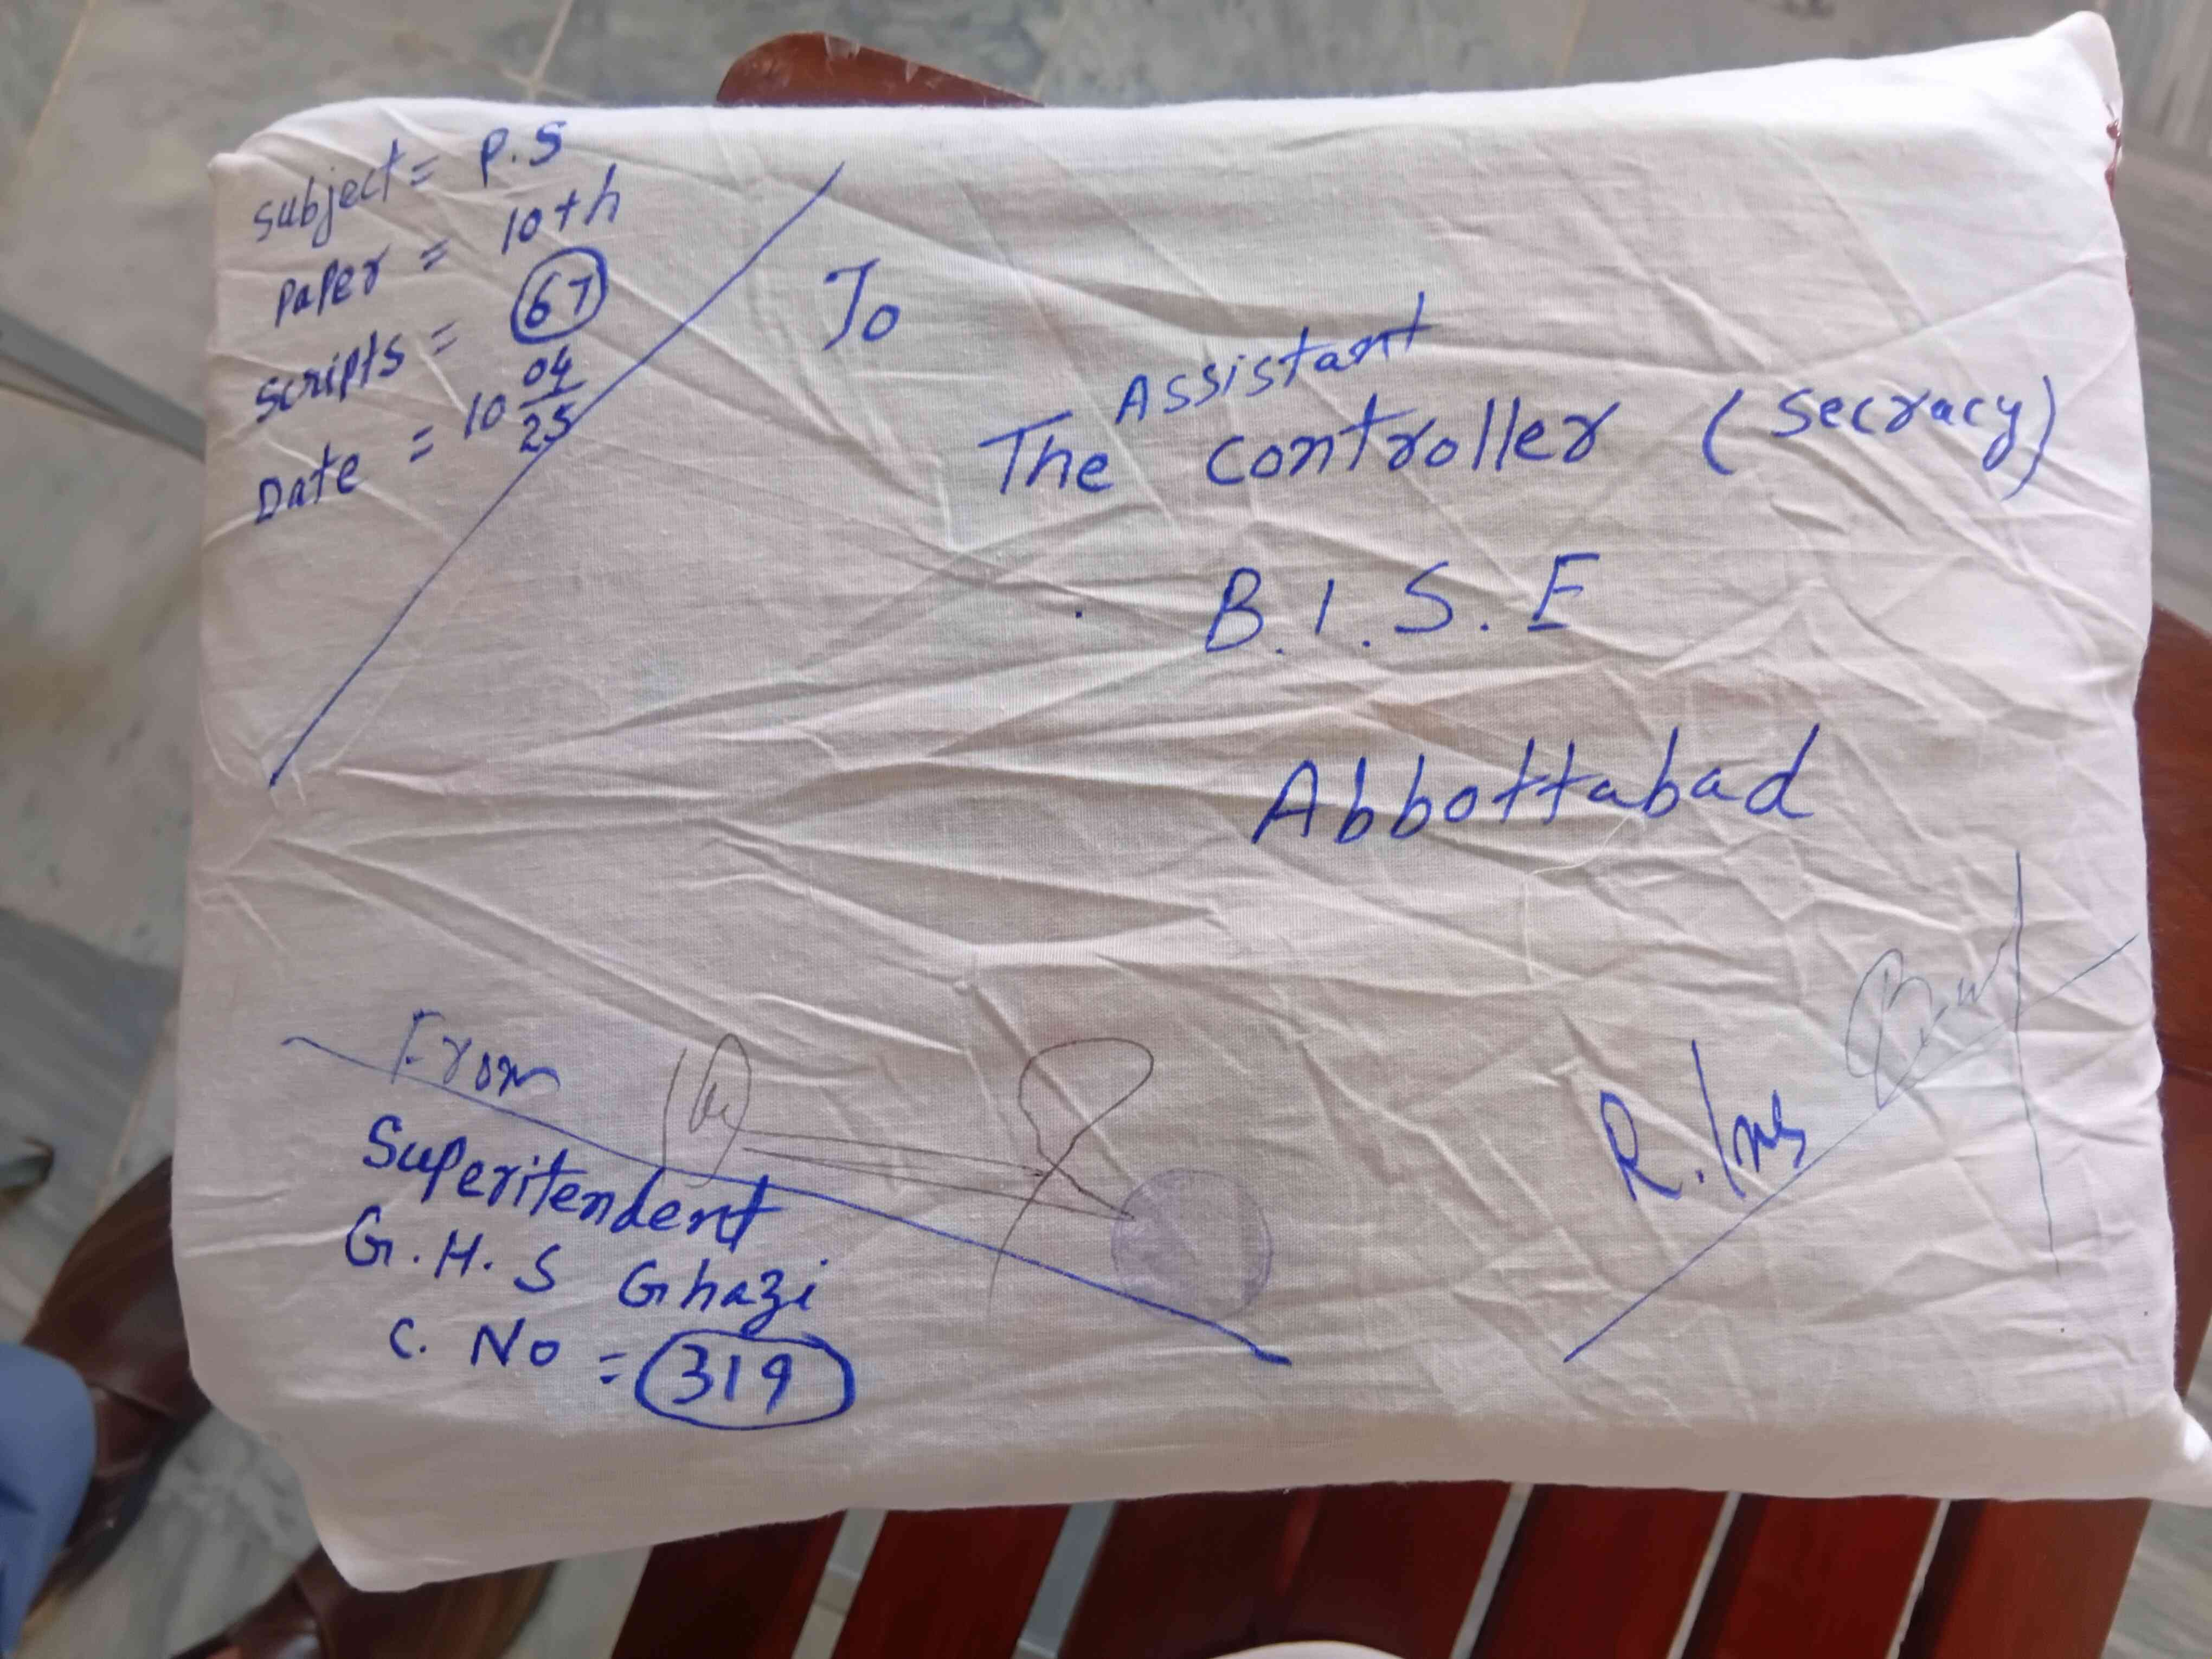 Subject = P.S
Paper = 10th
Scripts = 67
Date = 10 04/25
To
Assistant
The controller (Secracy)
B.I.S.E
Abbottabad
From
Superitendent
G.H.S Ghazi
C. No = 319
R. Ins